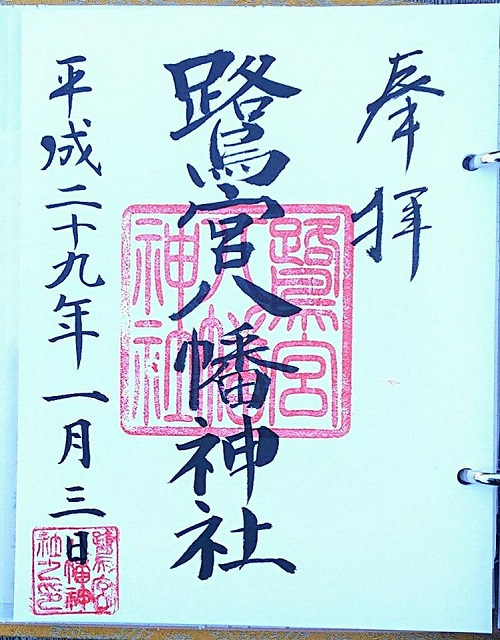 奉拝
鷺宮八幡神社
平成二十九年一月三日
鷺宮
八幡
神社
鷺宮八
幡神
社之印